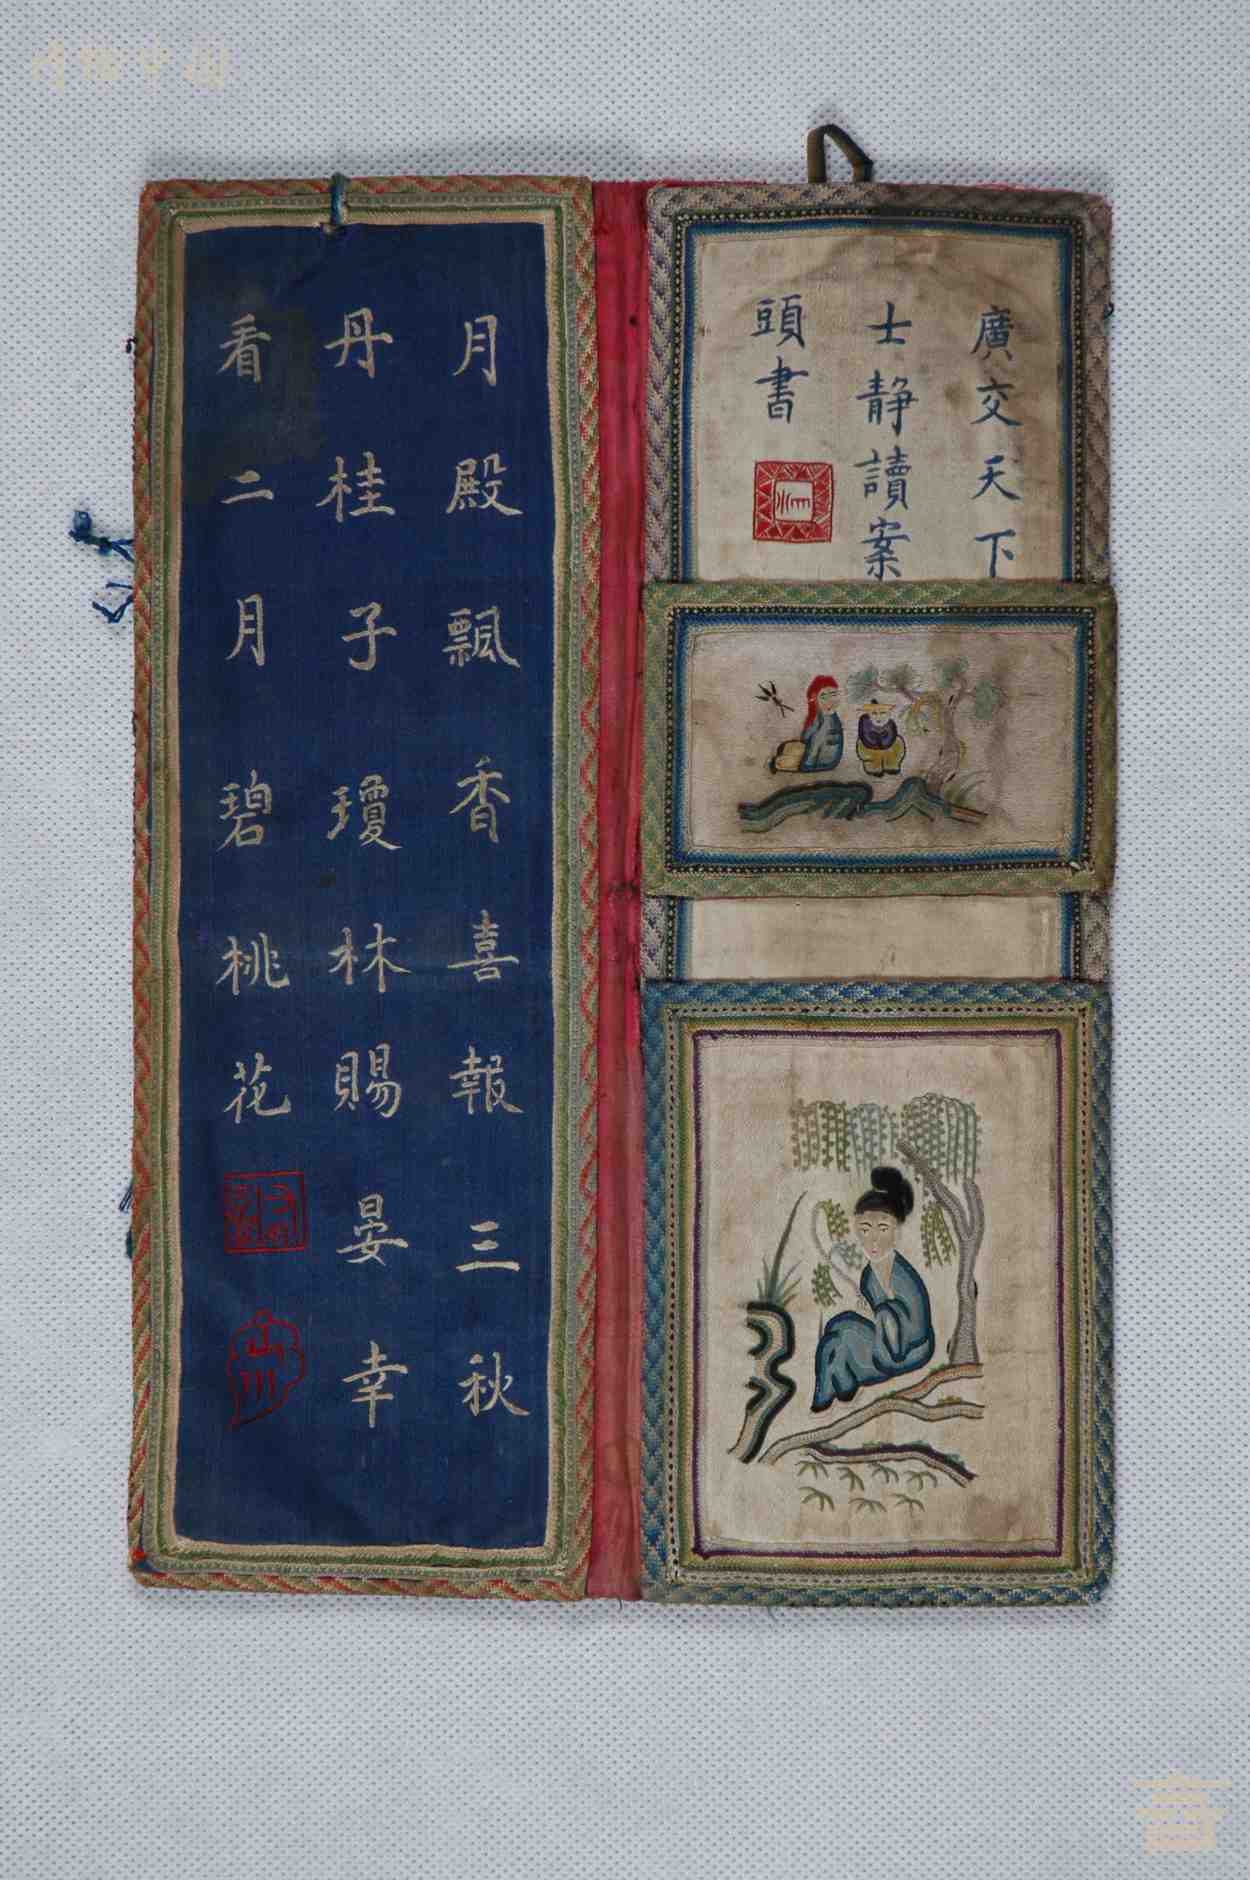 廣交天下
士静讀案
頭書
月殿飄香喜報三秋
丹桂子瓊林賜晏幸
看二月碧桃花
山川